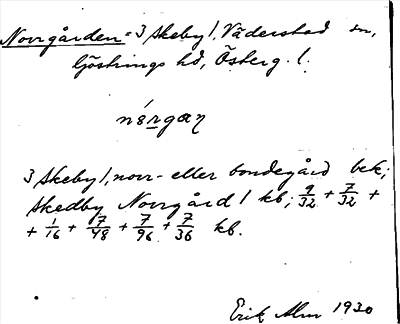 Norrgården = 3 Skeby 1, Väderstad sn,
Göstrings hd, Österg. l.
nórgaη
3 Skeby 1, norr- eller bondegård bek;
Skedby Norrgård 1 kb; 9/32 + 7/32 +
+ 1/16 + 7/48 + 7/96 + 7/36 kb.
Erik Alm 1930